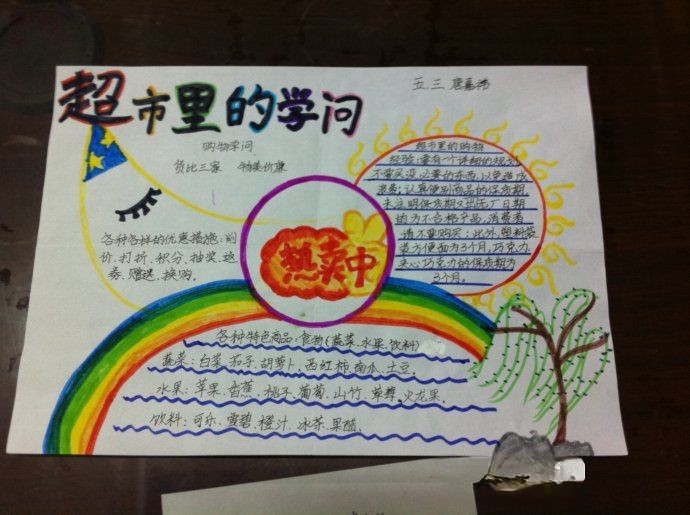 超市里的学问
五.三 唐嘉
购物学问
货比三家 物美价廉
各种各样的优惠措施:削
价、打折、积分、抽奖、返
券、赠送、换购。
热卖中
超市里的购物
经验:要有一个详细的规划
不要买没必要的东西,以免造成
浪费;认真便别商品的保质期,
未注明保质期又出无厂日期
均为不合格产品,消费者
请不要购买;此外,塑料袋
装方便面为3个月,巧克力、
夹心巧克力的保质期为
3个月。
各种特色商品:食物(蔬菜、水果、饮料)
蔬菜:白菜、茄子、胡萝卜、西红柿、南瓜、土豆、
水果:苹果、香蕉、桃子、葡萄、山竹、草莓、火龙果、
饮料:可乐、雪碧、橙汁、冰茶、果醋、